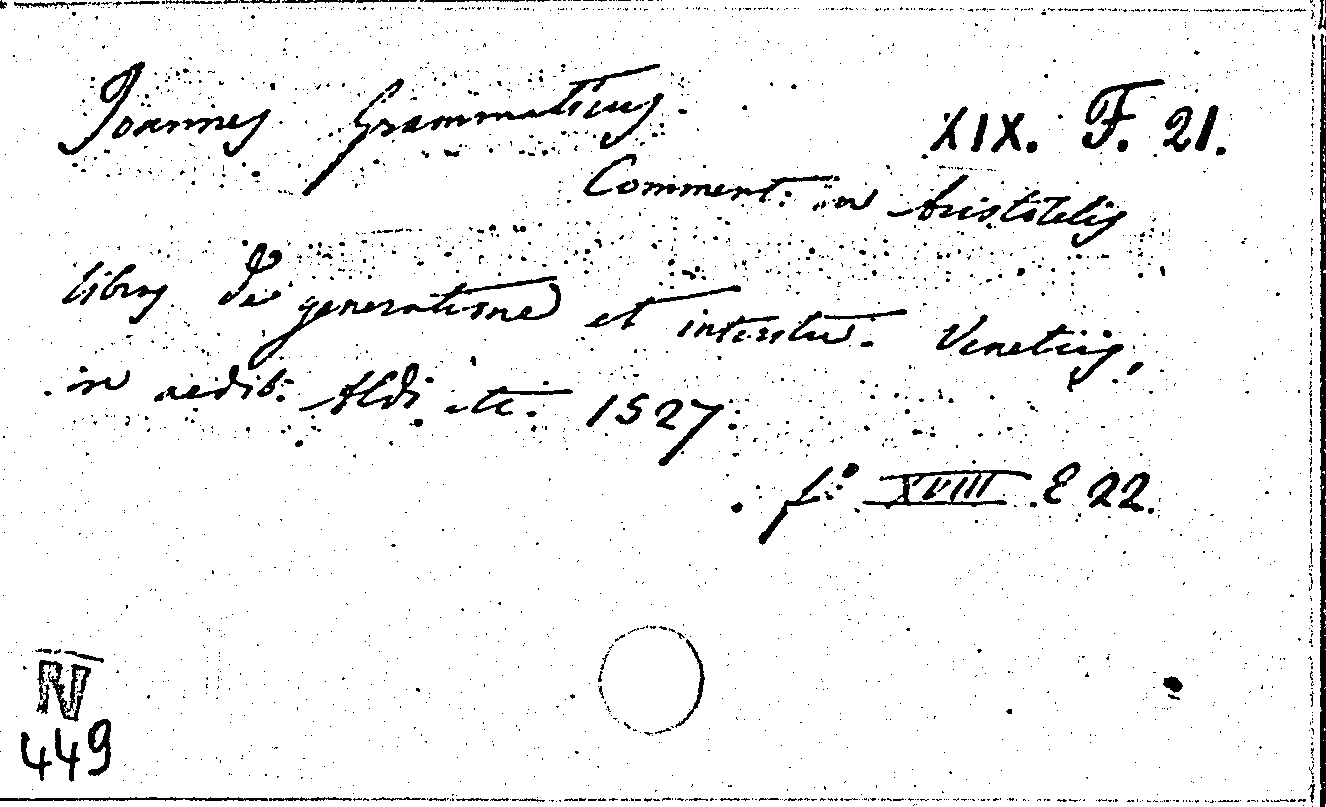 Joannes Grammaticus.
XIX. F. 21.
Comment. in Aristotelis
libros de generatione et interitu. Venetiis,
in aedib. Aldi etc. 1527.
f° XVIII E 22.
N
449